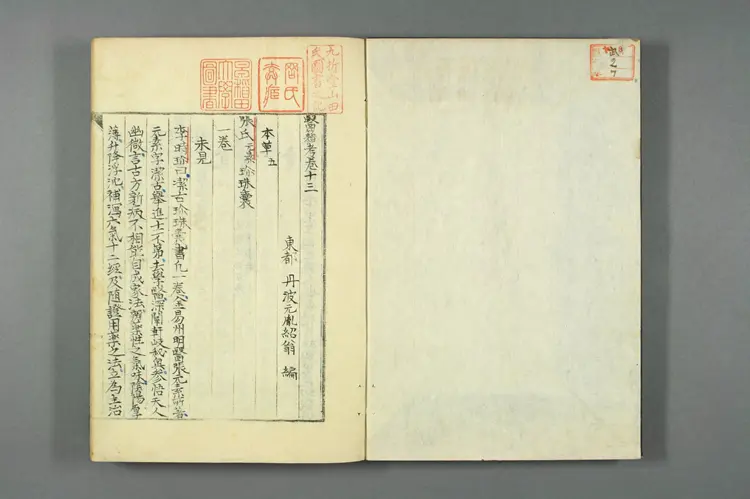 醫籍考卷十三
東都 丹波元胤紹翁 編
本草五
張氏元素珍珠囊
一卷
未見
李時珍曰潔古珍珠囊書凡一卷金易州明醫張元素所著
元素字潔古擧進士不第去學醫深闡軒岐秘奧參悟天人
幽微言古方新病不相能自成家法辨藥性之氣味陰陽厚
薄升降浮沈補瀉六氣十二經及隨證用藥之法立為主治
九折堂山田
氏圖書之記
早稻田
大學
圖書